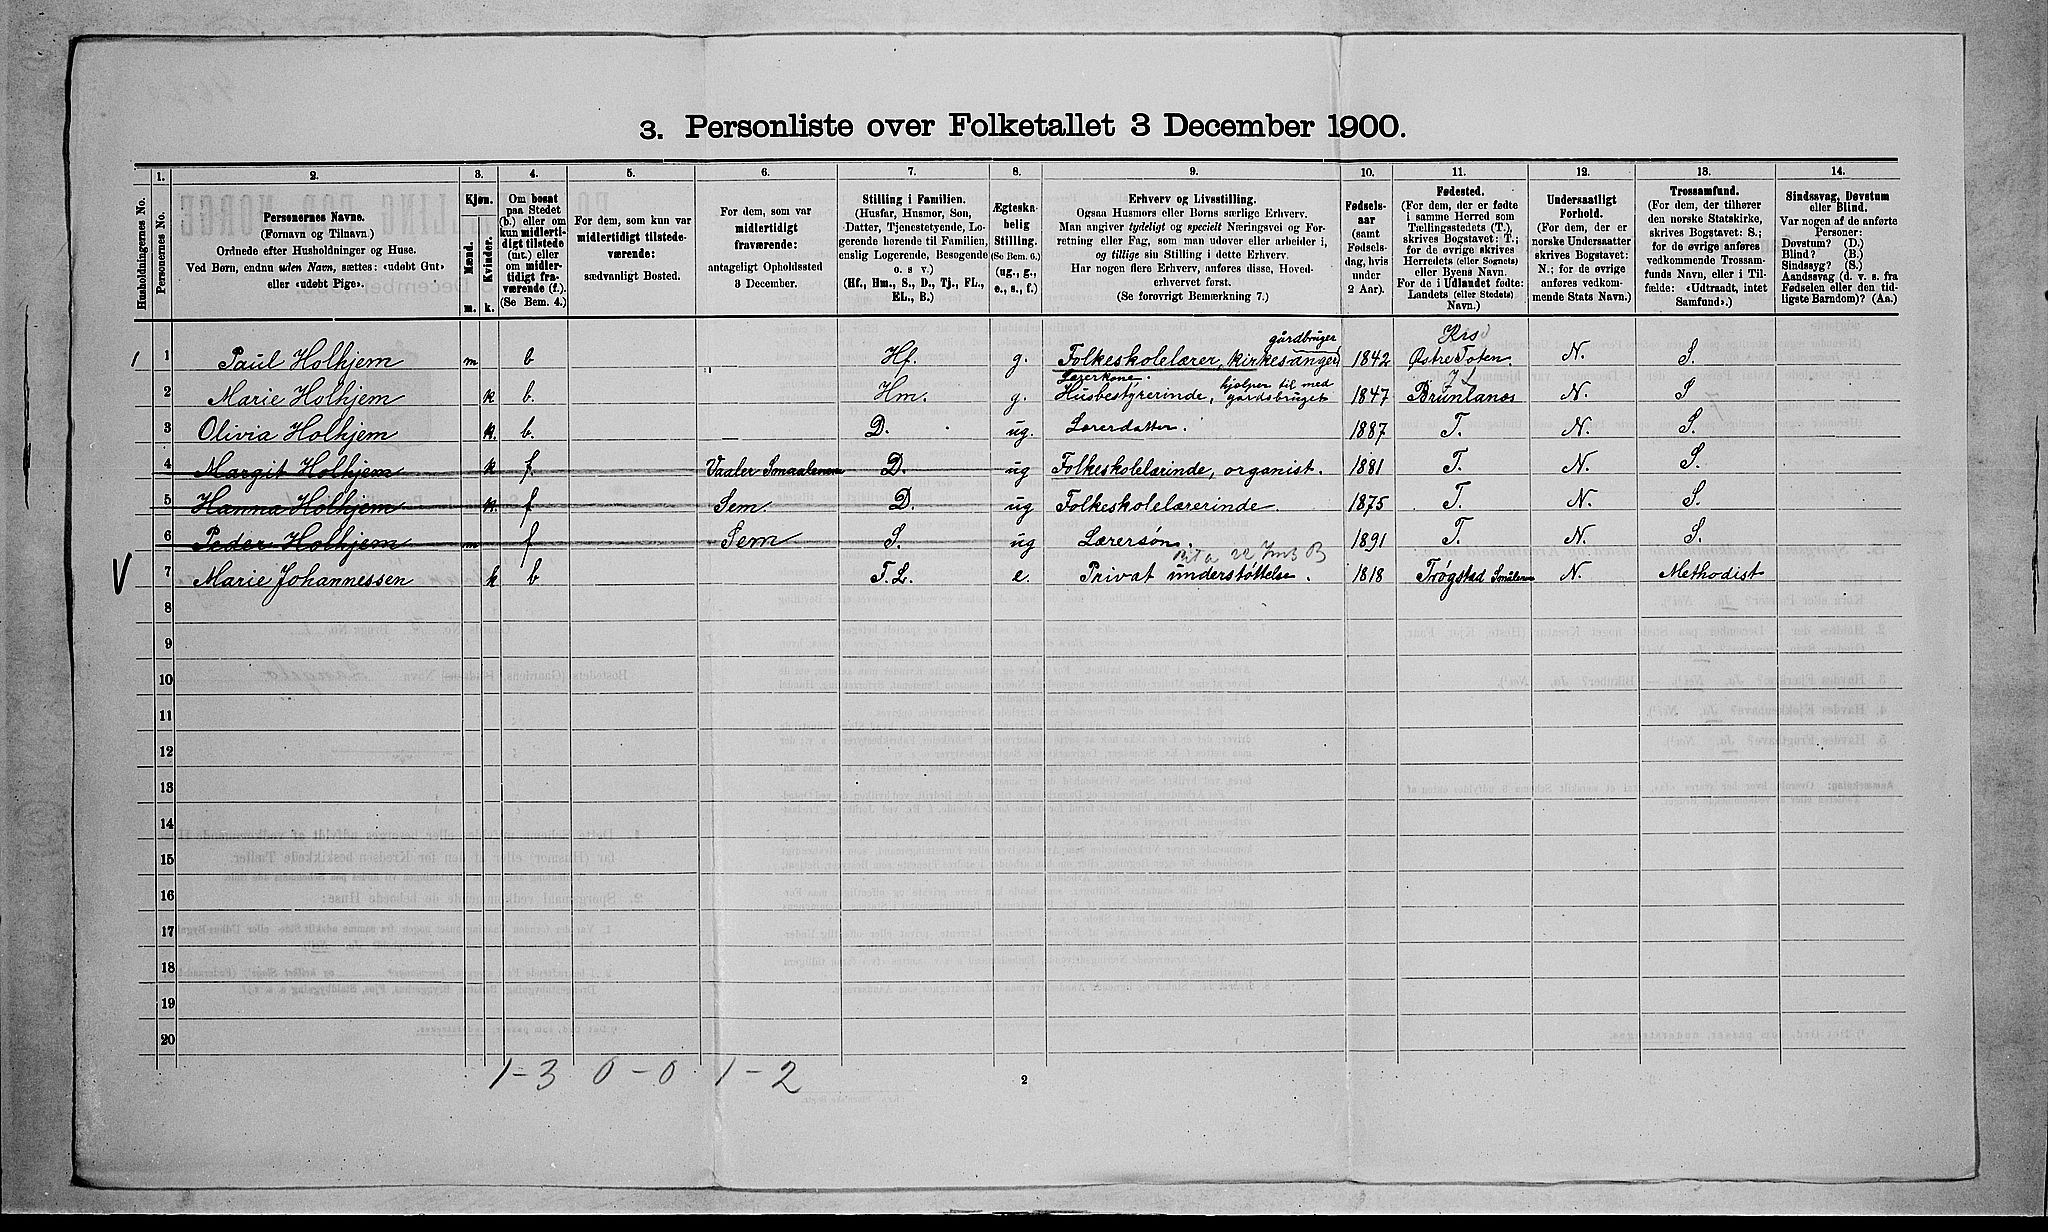 3. Personliste over Folketallet 3 December 1900.
1. 2. 3. 4. 5. 6. 7. 8. 9. 10. 11. 12. 13. 14.
Husholdningernes No.
Personernes No.
Personernes Navne.
(Fornavn og Tilnavn.)
Ordnede efter Husholdninger og Huse.
Ved Børn, endnu uden Navn, sættes: «udøbt Gut»
eller «udøbt Pige».
Kjøn.
Mænd.
Kvinder.
m. k.
Om bosat
paa Stedet
(b.) eller om
kun midlerti-
digt tilstede
(mt.) eller
om midler-
tidigt fra-
værende (f.).
(Se Bem. 4.)
For dem, som kun var
midlertidigt tilstede-
værende:
sædvanligt Bosted.
For dem, som var
midlertidigt
fraværende:
antageligt Opholdssted
3 December.
Stilling i Familien.
(Husfar, Husmor, Søn,
Datter, Tjenestetyende, Lo-
gerende hørende til Familien,
enslig Logerende, Besøgende
o. s. v.)
(Hf., Hm., S., D., Tj., FL.,
EL., B.)
Ægteska-
belig
Stilling.
(Se Bem. 6.)
(ug., g.,
e., s., f.)
Erhverv og Livsstilling.
Ogsaa Husmors eller Børns særlige Erhverv.
Man angiver tydeligt og specielt Næringsvei og For-
retning eller Fag, som man udøver eller arbeider i,
og tillige sin Stilling i dette Erhverv.
Har nogen flere Erhverv, anføres disse, Hoved-
erhvervet først.
(Se forøvrigt Bemærkning 7.)
Fødsels-
aar
(samt
Fødsels-
dag, hvis
under
2 Aar).
Fødested.
(For dem, der er fødte
i samme Herred som
Tællingsstedets (T.),
skrives Bogstavet: T.;
for de øvrige skrives
Herredets (eller Sognets)
eller Byens Navn.
For de i Udlandet fødte:
Landets (eller Stedets)
Navn.)
Undersaatligt
Forhold.
(For dem, der er
norske Undersaatter
skrives Bogstavet:
N.; for de øvrige
anføres vedkom-
mende Stats Navn.)
Trossamfund.
(For dem, der tilhører
den norske Statskirke,
skrives Bogstavet: S.;
for de øvrige anføres
vedkommende Trossam-
funds Navn, eller i Til-
fælde: «Udtraadt, intet
Samfund».)
Sindssvag, Døvstum
eller Blind.
Var nogen af de anførte
Personer:
Døvstum? (D.)
Blind? (B.)
Sindssyg? (S.)
Aandssvag (d. v. s. fra
Fødselen eller den tid-
ligste Barndom)? (Aa.)
gårdbruger Krs
1 1 Paul Holhjem m b Hf. g. Folkeskolelærer, kirkesanger 1842 Østre Toten. N. S.
Lærerkone. hjelper til med
2 Marie Holhjem k b. Hm. g. Husbestyrerinde, gårdsbruget 1847 Brunlanæs N. S
3 Olivia Holhjem k. b. D. ug. Lærerdatter. 1887 T. N. S.
4 Margit Holhjem k f. Vaaler Smaalenene D. ug Folkeskolelærinde, organist. 1881 T. N. S.
5 Hanna Holhjem k. f Sem. D. ug Folkeskolelærerinde. 1875 T. N. S.
6 Peder Holhjem m f Sem S. ug Lærersøn. 1891 T. N. S.
V 7 Marie Johannessen k b F. L. e. Privat understøttelse. 1818 Trøgstad N. Methodist
8
9
10
11
12
13
14
15
16
17
18
19
20
1-3 0-0 1-2
2